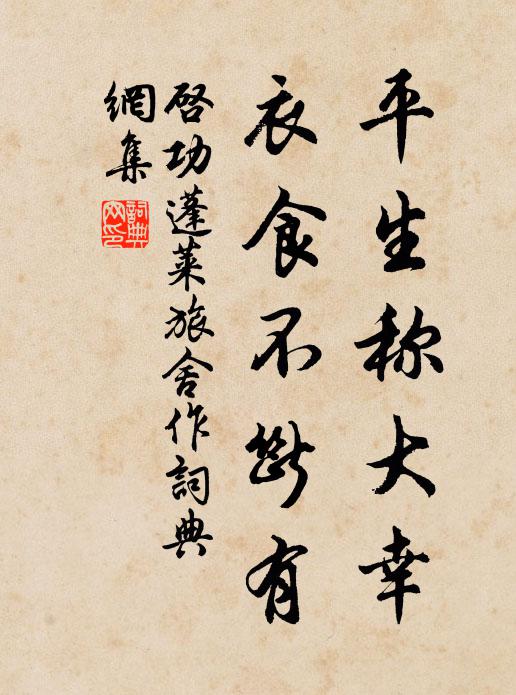 平生称大幸
衣食不断有
啓功蓬萊旅舍作詞典
網集
詞典
网印